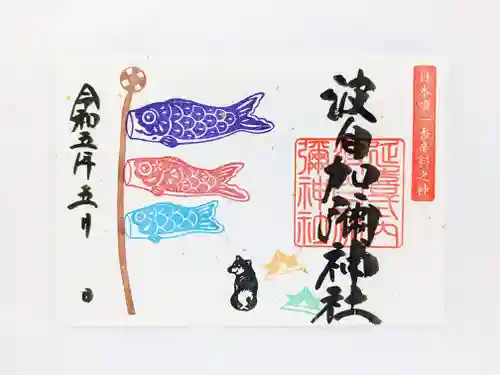 日本唯一香辛料之神
波自加彌神社
延喜式内
彌神社
令和五年五月
日